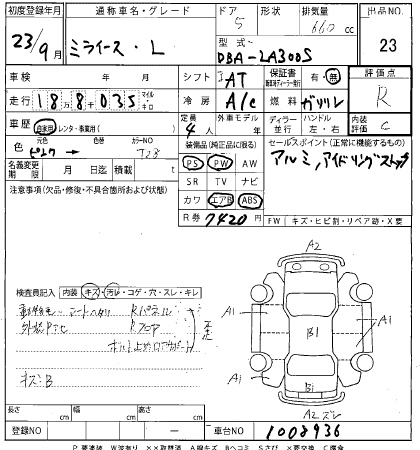 初度登録年月 通称車名・グレード ドア 形状 排気量 出品NO.
23/9月 ミライース・L 5 660 cc 23
型式 DBA-LA300S
車検 年 月 シフト IAT 保証書 有・無 評価点
走行 18万8千035 マイル キロ 冷房 A/C 燃料 ガソリン R
車歴 自家用 レンタ・事業用( ) 定員 4人 外車モデル 年 ディーラー 並行 ハンドル 左・右 内装評価 C
色 元色 ピンク 色替 カラーNO T23 装備品(純正品に限る) セールスポイント(正常に機能するもの)
PS PW AW アルミ,アイドリングストップ
名義変更期限 月 日迄 積載 t SR TV ナビ
注意事項(欠品・修復・不具合箇所および状態) カワ エアB ABS
R券 7420円 FW(キズ・ヒビ割・リペア跡・X要
A2
検査員記入 内装 キズ・汚レ・コゲ・穴・スレ・キレ
シートヘタリ Rパネル
Rフロア
キズ:B
A1 B1 A1
A1 B1 A1
A2 ズレ
長さ cm 幅 cm 高さ cm
登録NO ― 車台NO 1008936
P要塗装 W波有り ××取替済 A線キズ Bヘコミ Sさび ×要交換 C腐食